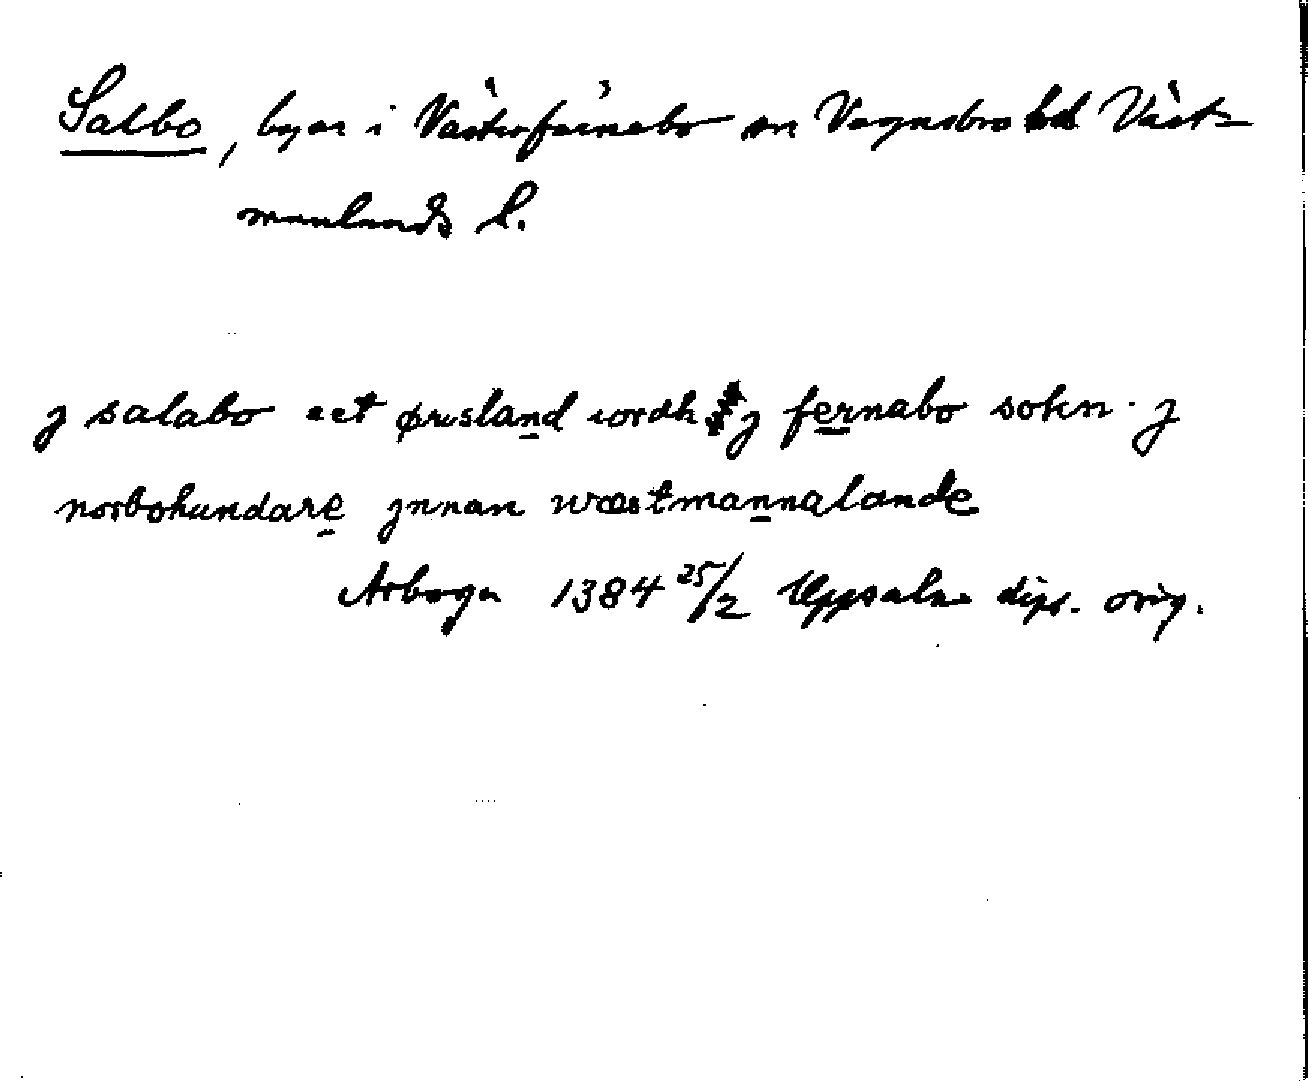 Salbo, byar i Västerfärnebo sn Vagnsbro hd Väst-
manlands l.
j salabo eet ørusland iordh j fernabo sokn . j
norbohundare jnnan wæstmannalande
Arboga 1384 25/2 Uppsala dipl. orig.